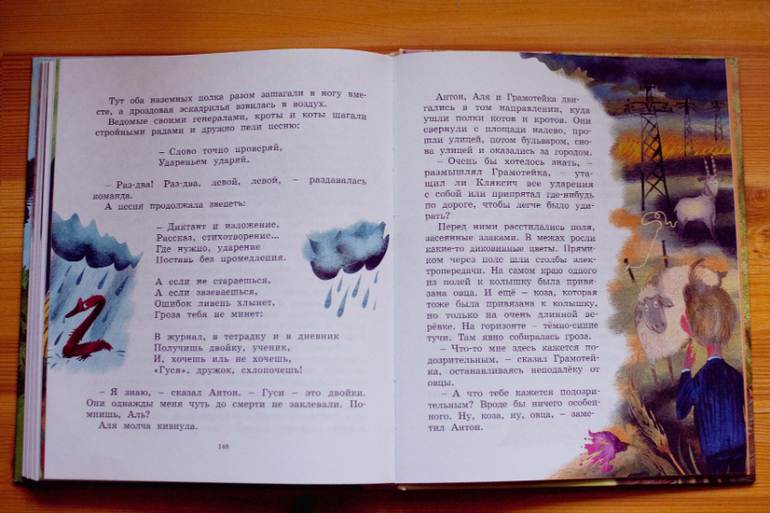 Тут оба наземных полка разом зашагали в ногу вме-
сте, а дроздовая эскадрилья взвилась в воздух.
Ведомые своими генералами, кроты и коты шагали
стройными рядами и дружно пели песню:
– Слово точно проверяй,
Удареньем ударяй.
– Раз-два! Раз-два, левой, левой, – раздавалась
команда.
А песня продолжала звенеть:
– Диктант и изложение,
Рассказ, стихотворение...
Где нужно, ударение
Поставь без промедления.
А если не стараешься,
А если зазеваешься,
Ошибок ливень хлынет,
Гроза тебя не минет:
В журнал, в тетрадку и в дневник
Получишь двойку, ученик,
И, хочешь иль не хочешь,
«Гуся», дружок, схлопочешь!
– Я знаю, – сказал Антон. – Гуси – это двойки.
Они однажды меня чуть до смерти не заклевали. По-
мнишь, Аль?
Аля молча кивнула.
148
Антон, Аля и Грамотейка дви-
гались в том направлении, куда
ушли полки котов и кротов. Они
свернули с площади налево, про-
шли улицей, потом бульваром, сно-
ва улицей и оказались за городом.
– Очень бы хотелось знать, –
размышлял Грамотейка, – ута-
щил ли Кляксич все ударения
с собой или припрятал где-нибудь
по дороге, чтобы легче было уди-
рать?
Перед ними расстилались поля,
засеянные злаками. В межах росли
какие-то диковинные цветы. Прями-
ком через поле шли столбы элек-
тропередачи. На самом краю одного
из полей к колышку была привя-
зана овца. И ещё – коза, которая
тоже была привязана к колышку,
но только на очень длинной ве-
рёвке. На горизонте – тёмно-синие
тучи. Там явно собиралась гроза.
– Что-то мне здесь кажется по-
дозрительным, – сказал Грамотей-
ка, останавливаясь неподалёку от
овцы.
– А что тебе кажется подозри-
тельным? Вроде бы ничего особен-
ного. Ну, коза, ну, овца, – заме-
тил Антон.